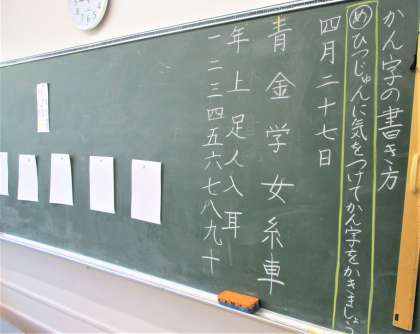 かん字の書き方
めひつじゅんに気をつけてかん字をかきましょ
四月二十七日
青金学女糸車
年上足人入耳
一二三四五六七八九十